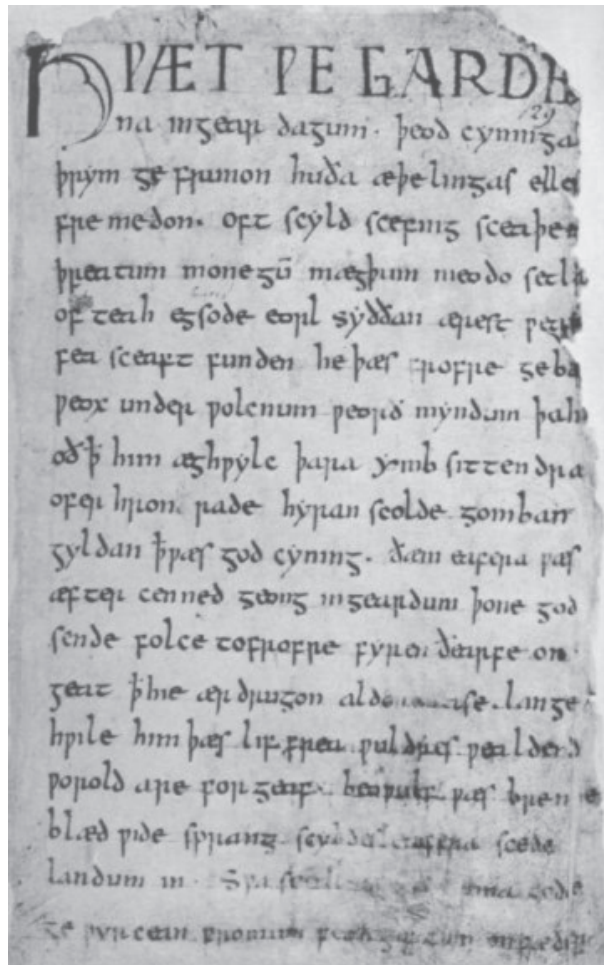 HǷÆT ǷE GARDE
129
na ingear dagum. þeod cyninga
þrym ge frunon huða æþelingas elle
fre medon. oft scyld scefing sceaþe
þreatum monegū mægþum meodo setla
of teah egsode eorl syððan ærest ƿear
fea sceaft funden he þæs frofre geba
ƿeox under ƿolcnum ƿeorð myndum þah
oð ꝥ him æghƿylc þara ymb sittendra
ofer hron rade hyran scolde gomban
gyldan ꝥ ƿæs god cyning. ðæm eafera ƿæs
æfter cenned geong ingeardum þone god
sende folce tofrofre fyren ðearfe on
geat ꝥ hie ær drugon aldo ase. lange
hƿile him þæs lif frea ƿuldres ƿealdend
ƿorold are for geaf. beoƿulf ƿæs breme
blæd ƿide sprang scyldes eafera scede
landum in. Sƿa guma gode
ge ƿyrcean fromum feoh giftum